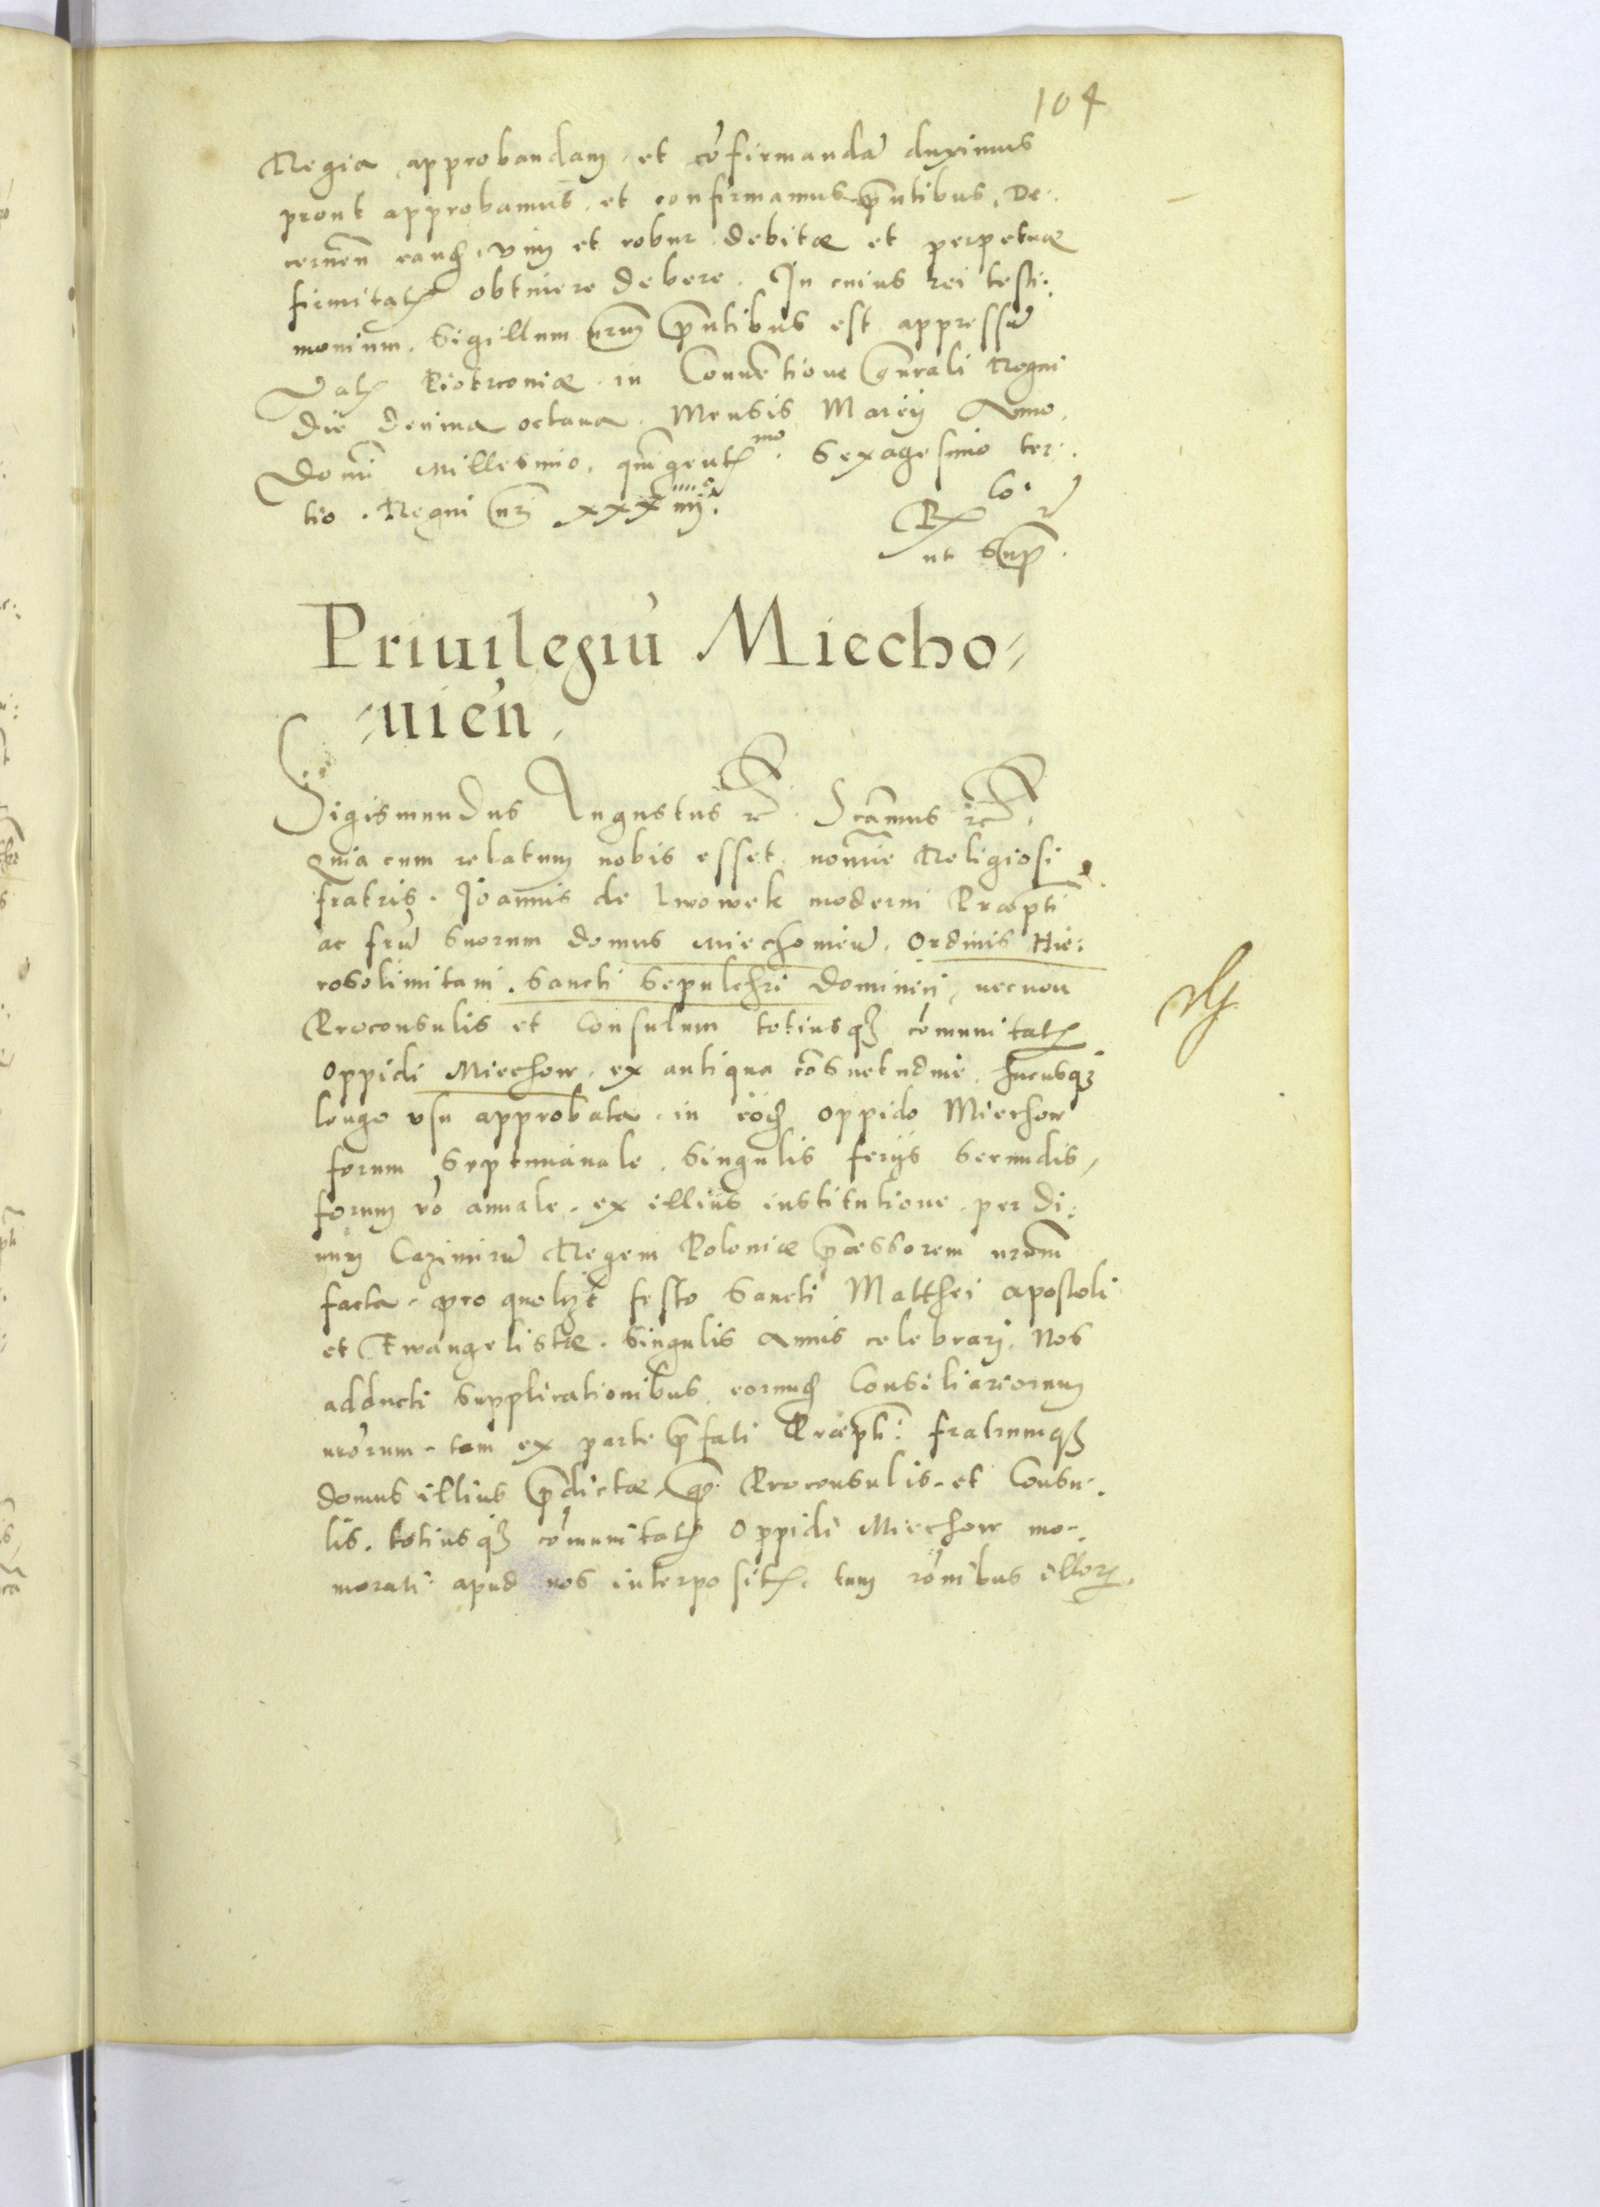 104
Regia approbandam et cõfirmandã duximus
prout approbamus et confirmamus pñtibus, De-
cernen̄ eand. vim et robur debitae et perpetuae
firmitat. obtinere debere. In cuius rei testi:
monium. Sigillum nrũm pñtibus est appressũ
Dat. Piotrconiae in Conuẽtione gñrali Regni
die decima octaua. Mensis Marcij Anno.
Domĩ Millesimo. quĩgent.mo. Sexagesimo ter-
tio. Regni nrĩ xxxiiij.
Rx Co. r
ut sup̃.
Priuilegiũ Miecho-
-uien̄
Sigismundus Augustus rc. Sẽamus rc.
Quia cum relatum nobis esset noĩe Religiosi
fratris. Joannis de Lwowek moderni Praepti
ac frũ suorum domus Miechouieñ. Ordinis Hie:
rosolimitani. Sancti Sepulchri Dominici, necnon
Proconsulis et Consulum totiusq3 cõmunitat.
Oppidi Miechow. ex antiqua cõsuetudine. hucusq3
longo vsu approbata. in eõd oppido Miechow
forum septimanale. Singulis ferijs secundis,
forum võ annale. ex illius institutione per di-
uum Cazimirũ Regem Poloniae p̃cessorem nrũm
facta. pro quolz̃t festo Sancti Matthei apostoli
et Ewangelistae. Singulis Annis celebrari. Nos
adducti supplicationibus eorund Consiliariorum
nrõrum. tam ex parte p̃fati Praepti: fratrumq3
domus illius p̃dictae, q̃. Proconsulis et Consu-
lis. totiusq3 cõmunitat. Oppidi Miechow me-
morati apud nos interposit. tum rõnibus illor.